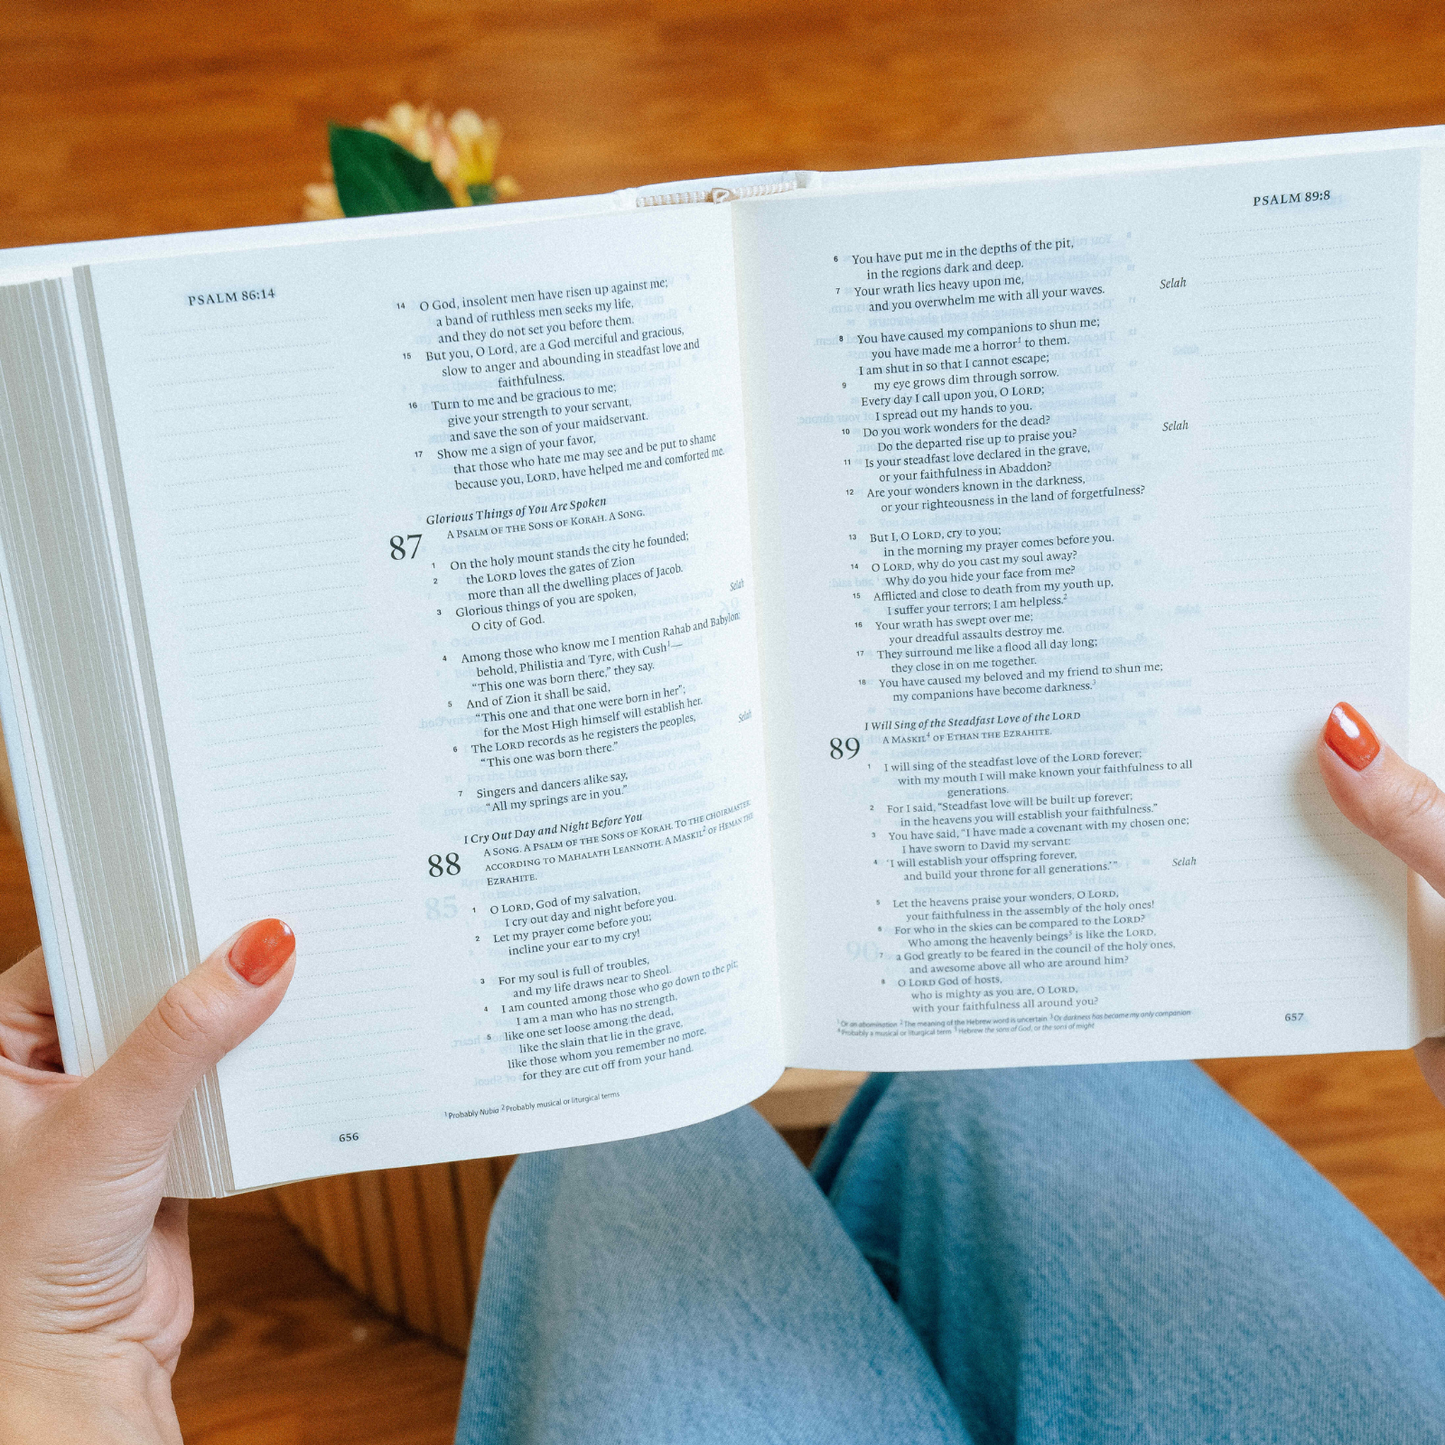 PSALM 86:14
14 O God, insolent men have risen up against me;
a band of ruthless men seeks my life,
and they do not set you before them.
15 But you, O Lord, are a God merciful and gracious,
slow to anger and abounding in steadfast love and
faithfulness.
16 Turn to me and be gracious to me;
give your strength to your servant,
and save the son of your maidservant.
17 Show me a sign of your favor,
that those who hate me may see and be put to shame
because you, LORD, have helped me and comforted me.
Glorious Things of You Are Spoken
87 A PSALM OF THE SONS OF KORAH. A SONG.
1 On the holy mount stands the city he founded;
2 the LORD loves the gates of Zion
more than all the dwelling places of Jacob.
3 Glorious things of you are spoken,
O city of God. Selah
4 Among those who know me I mention Rahab and Babylon;
behold, Philistia and Tyre, with Cush¹—
“This one was born there,” they say.
5 And of Zion it shall be said,
“This one and that one were born in her”;
for the Most High himself will establish her.
6 The LORD records as he registers the peoples,
“This one was born there.” Selah
7 Singers and dancers alike say,
“All my springs are in you.”
I Cry Out Day and Night Before You
88 A SONG. A PSALM OF THE SONS OF KORAH. TO THE CHOIRMASTER:
ACCORDING TO MAHALATH LEANNOTH. A MASKIL² OF HEMAN THE
EZRAHITE.
1 O LORD, God of my salvation,
I cry out day and night before you.
2 Let my prayer come before you;
incline your ear to my cry!
3 For my soul is full of troubles,
and my life draws near to Sheol.
4 I am counted among those who go down to the pit;
I am a man who has no strength,
5 like one set loose among the dead,
like the slain that lie in the grave,
like those whom you remember no more,
for they are cut off from your hand.
¹ Probably Nubia ² Probably musical or liturgical terms
656
PSALM 89:8
6 You have put me in the depths of the pit,
in the regions dark and deep.
7 Your wrath lies heavy upon me,
and you overwhelm me with all your waves. Selah
8 You have caused my companions to shun me;
you have made me a horror¹ to them.
I am shut in so that I cannot escape;
9 my eye grows dim through sorrow.
Every day I call upon you, O LORD;
I spread out my hands to you.
10 Do you work wonders for the dead?
Do the departed rise up to praise you? Selah
11 Is your steadfast love declared in the grave,
or your faithfulness in Abaddon?
12 Are your wonders known in the darkness,
or your righteousness in the land of forgetfulness?
13 But I, O LORD, cry to you;
in the morning my prayer comes before you.
14 O LORD, why do you cast my soul away?
Why do you hide your face from me?
15 Afflicted and close to death from my youth up,
I suffer your terrors; I am helpless.²
16 Your wrath has swept over me;
your dreadful assaults destroy me.
17 They surround me like a flood all day long;
they close in on me together.
18 You have caused my beloved and my friend to shun me;
my companions have become darkness.³
I Will Sing of the Steadfast Love of the LORD
89 A MASKIL⁴ OF ETHAN THE EZRAHITE.
1 I will sing of the steadfast love of the LORD forever;
with my mouth I will make known your faithfulness to all
generations.
2 For I said, “Steadfast love will be built up forever;
in the heavens you will establish your faithfulness.”
3 You have said, “I have made a covenant with my chosen one;
I have sworn to David my servant:
4 ‘I will establish your offspring forever,
and build your throne for all generations.’” Selah
5 Let the heavens praise your wonders, O LORD,
your faithfulness in the assembly of the holy ones!
6 For who in the skies can be compared to the LORD?
Who among the heavenly beings⁵ is like the LORD,
7 a God greatly to be feared in the council of the holy ones,
and awesome above all who are around him?
8 O LORD God of hosts,
who is mighty as you are, O LORD,
with your faithfulness all around you?
¹ Or an abomination ² The meaning of the Hebrew word is uncertain ³ Or darkness has become my only companion
⁴ Probably a musical or liturgical term ⁵ Hebrew the sons of God, or the sons of might
657